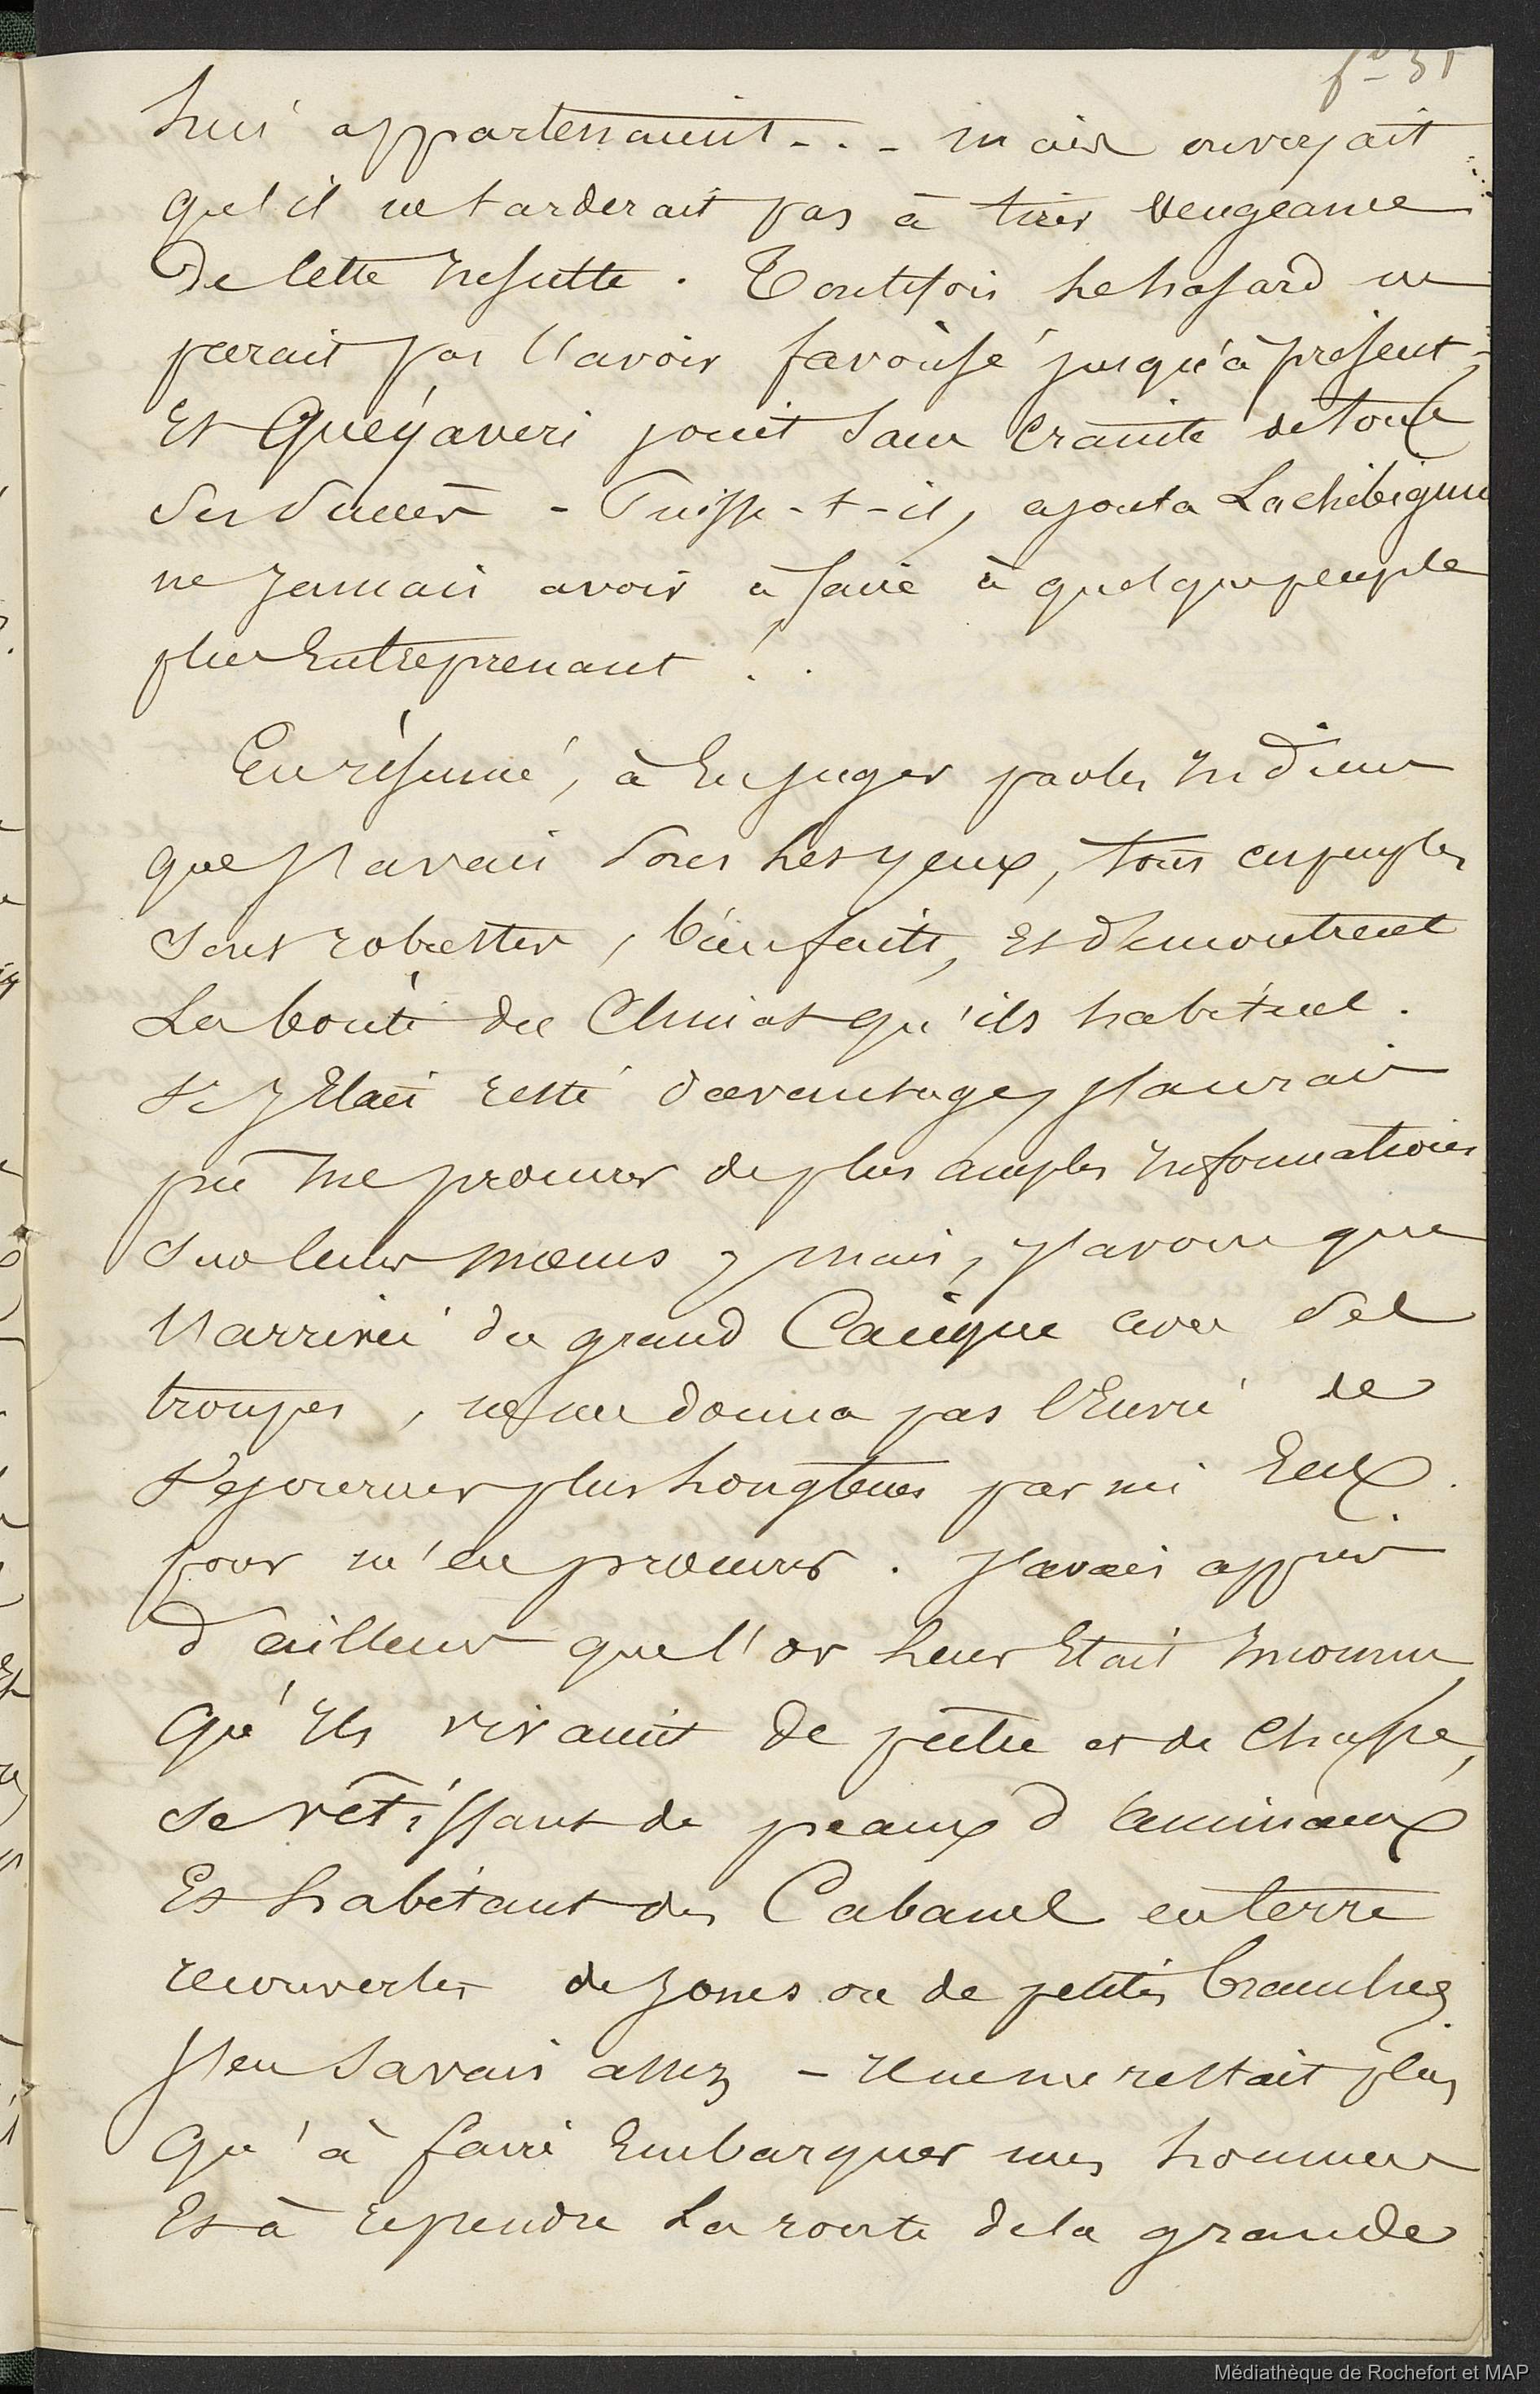 fo 31
lui appartenaient - . - mais croyait
qu'il ne tarderait pas à tirer vengeance
de cette insulte . Toutefois le hasard ne
parait pas l'avoir favorisé jusqu'à présent -
Et Quéyaveri jouit sans crainte de tous
ses succès - Puisse-t-il, ajouta Lachibigum
ne jamais avoir à faire à quelque peuple
plus Entreprenant ! .
En résumé, à En juger par les Indiens
que j'avais sous les yeux, tous ces peuples
sont robustes, bien faits, Et démontrent
La bonté du Climat qu'ils habitent .
Si j'Etais resté davantage, j'aurais
pû me procurer de plus amples Informations
sur leurs mœurs ; mais, j'avoue que
l'arrivée du grand Cacique avec ses
troupes, ne me donna pas l'Envie de
séjourner plus longtems parmi Eux .
pour m'en procurer . J'avais appris
d'ailleurs que l'or leur Etait Inconnu
Qu'Ils vivaient de pêche et de Chasse,
se vêtissant de peaux d'animaux
Et habitant des Cabanes en terre
recouvertes de joncs ou de petites branches
J'en Savais assez - Il ne me restait plus
Qu'à faire Embarquer mes hommes
Et à reprendre La route de la grande
Médiathèque de Rochefort et MAP